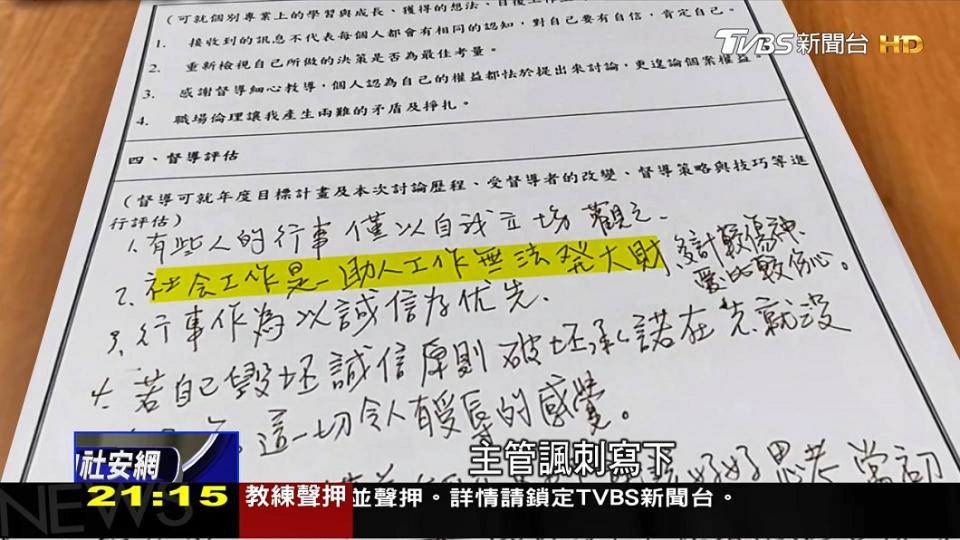 (可就個別專業上的學習與成長、獲得的想法、
TVBS新聞台 HD
1. 接收到的訊息不代表每個人都會有相同的認知，對自己要有自信，肯定自己。
2. 重新檢視自己所做的決策是否為最佳考量。
3. 感謝督導細心教導，個人認為自己的權益都怯於提出來討論，更遑論個案權益。
4. 職場倫理讓我產生兩難的矛盾及掙扎。
四、督導評估
(督導可就年度目標計畫及本次討論歷程、受督導者的改變、督導策略與技巧等進
行評估)
1. 有些人的行事僅以自我立場觀之.
2. 社会工作是一助人工作無法発大財
計較傷神,
愛比較傷心。
3. 行事作為以誠信為优先.
4. 若自己毀坏誠信原則破坏承諾在先就沒
這一切令人有受辱的感覺。
好好思考當初
主管諷刺寫下
社安網
NEWS
21:15
教練聲押 並聲押。詳情請鎖定TVBS新聞台。